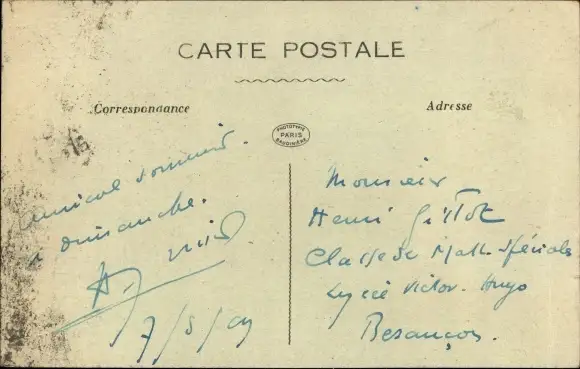 CARTE POSTALE
Correspondance
Adresse
PHOTOTYPIE
PARIS
BAUDINIÈRE
Amical souvenir.
dimanche.
Monsieur
Henri
Classe de Math. Spéciales
Lycée Victor-Hugo
Besançon.